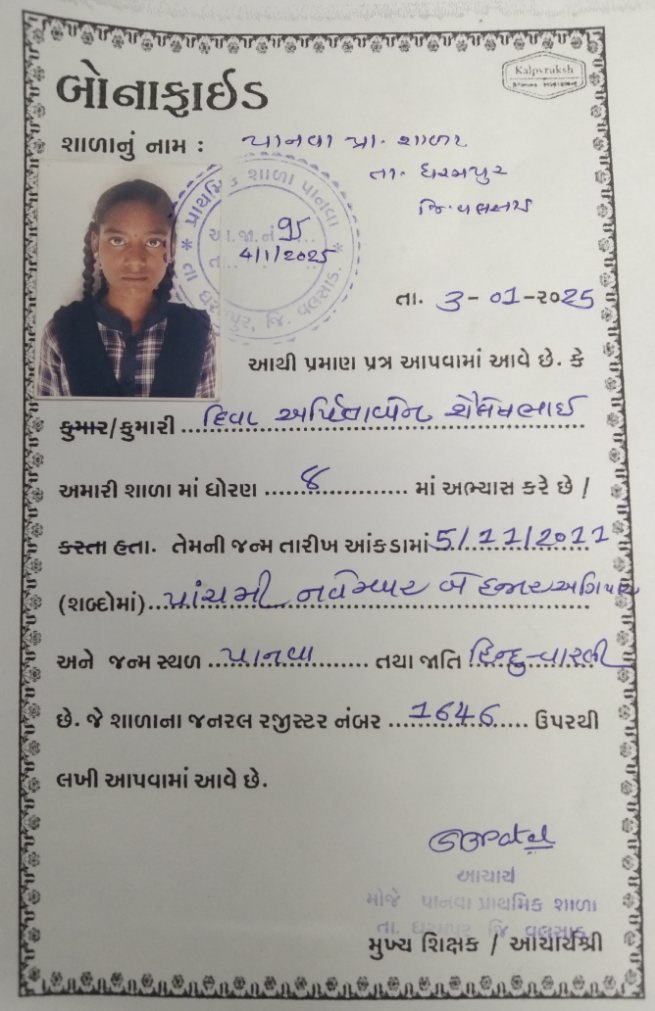 Kalpvruksh
બોનાફાઈડ
શાળાનું નામ : પાનવા પ્રા. શાળા
તા. ધરમપુર
જિ. વલસાડ
પ્રાથમિક શાળા પાનવા
આ.જા.નં 95
તા. 4/1/2025
તા. ધરમપુર, જિ. વલસાડ.
તા. 3-01-૨૦25
આથી પ્રમાણ પત્ર આપવામાં આવે છે. કે
કુમાર/કુમારી અર્પિતાબેન શૈલેષભાઈ
અમારી શાળા માં ધોરણ ૪ માં અભ્યાસ કરે છે /
કરતા હતા. તેમની જન્મ તારીખ આંકડામાં 5/11/2011
(શબ્દોમાં) પાંચમી નવેમ્બર બે હજાર અગિયાર
અને જન્મ સ્થળ પાનવા તથા જાતિ હિન્દુ-વારલી
છે. જે શાળાના જનરલ રજીસ્ટર નંબર 1646 ઉપરથી
લખી આપવામાં આવે છે.
GBPatel
આચાર્ય
મોજે પાનવા પ્રાથમિક શાળા
તા. ધરમપુર જિ. વલસાડ
મુખ્ય શિક્ષક / આચાર્યશ્રી